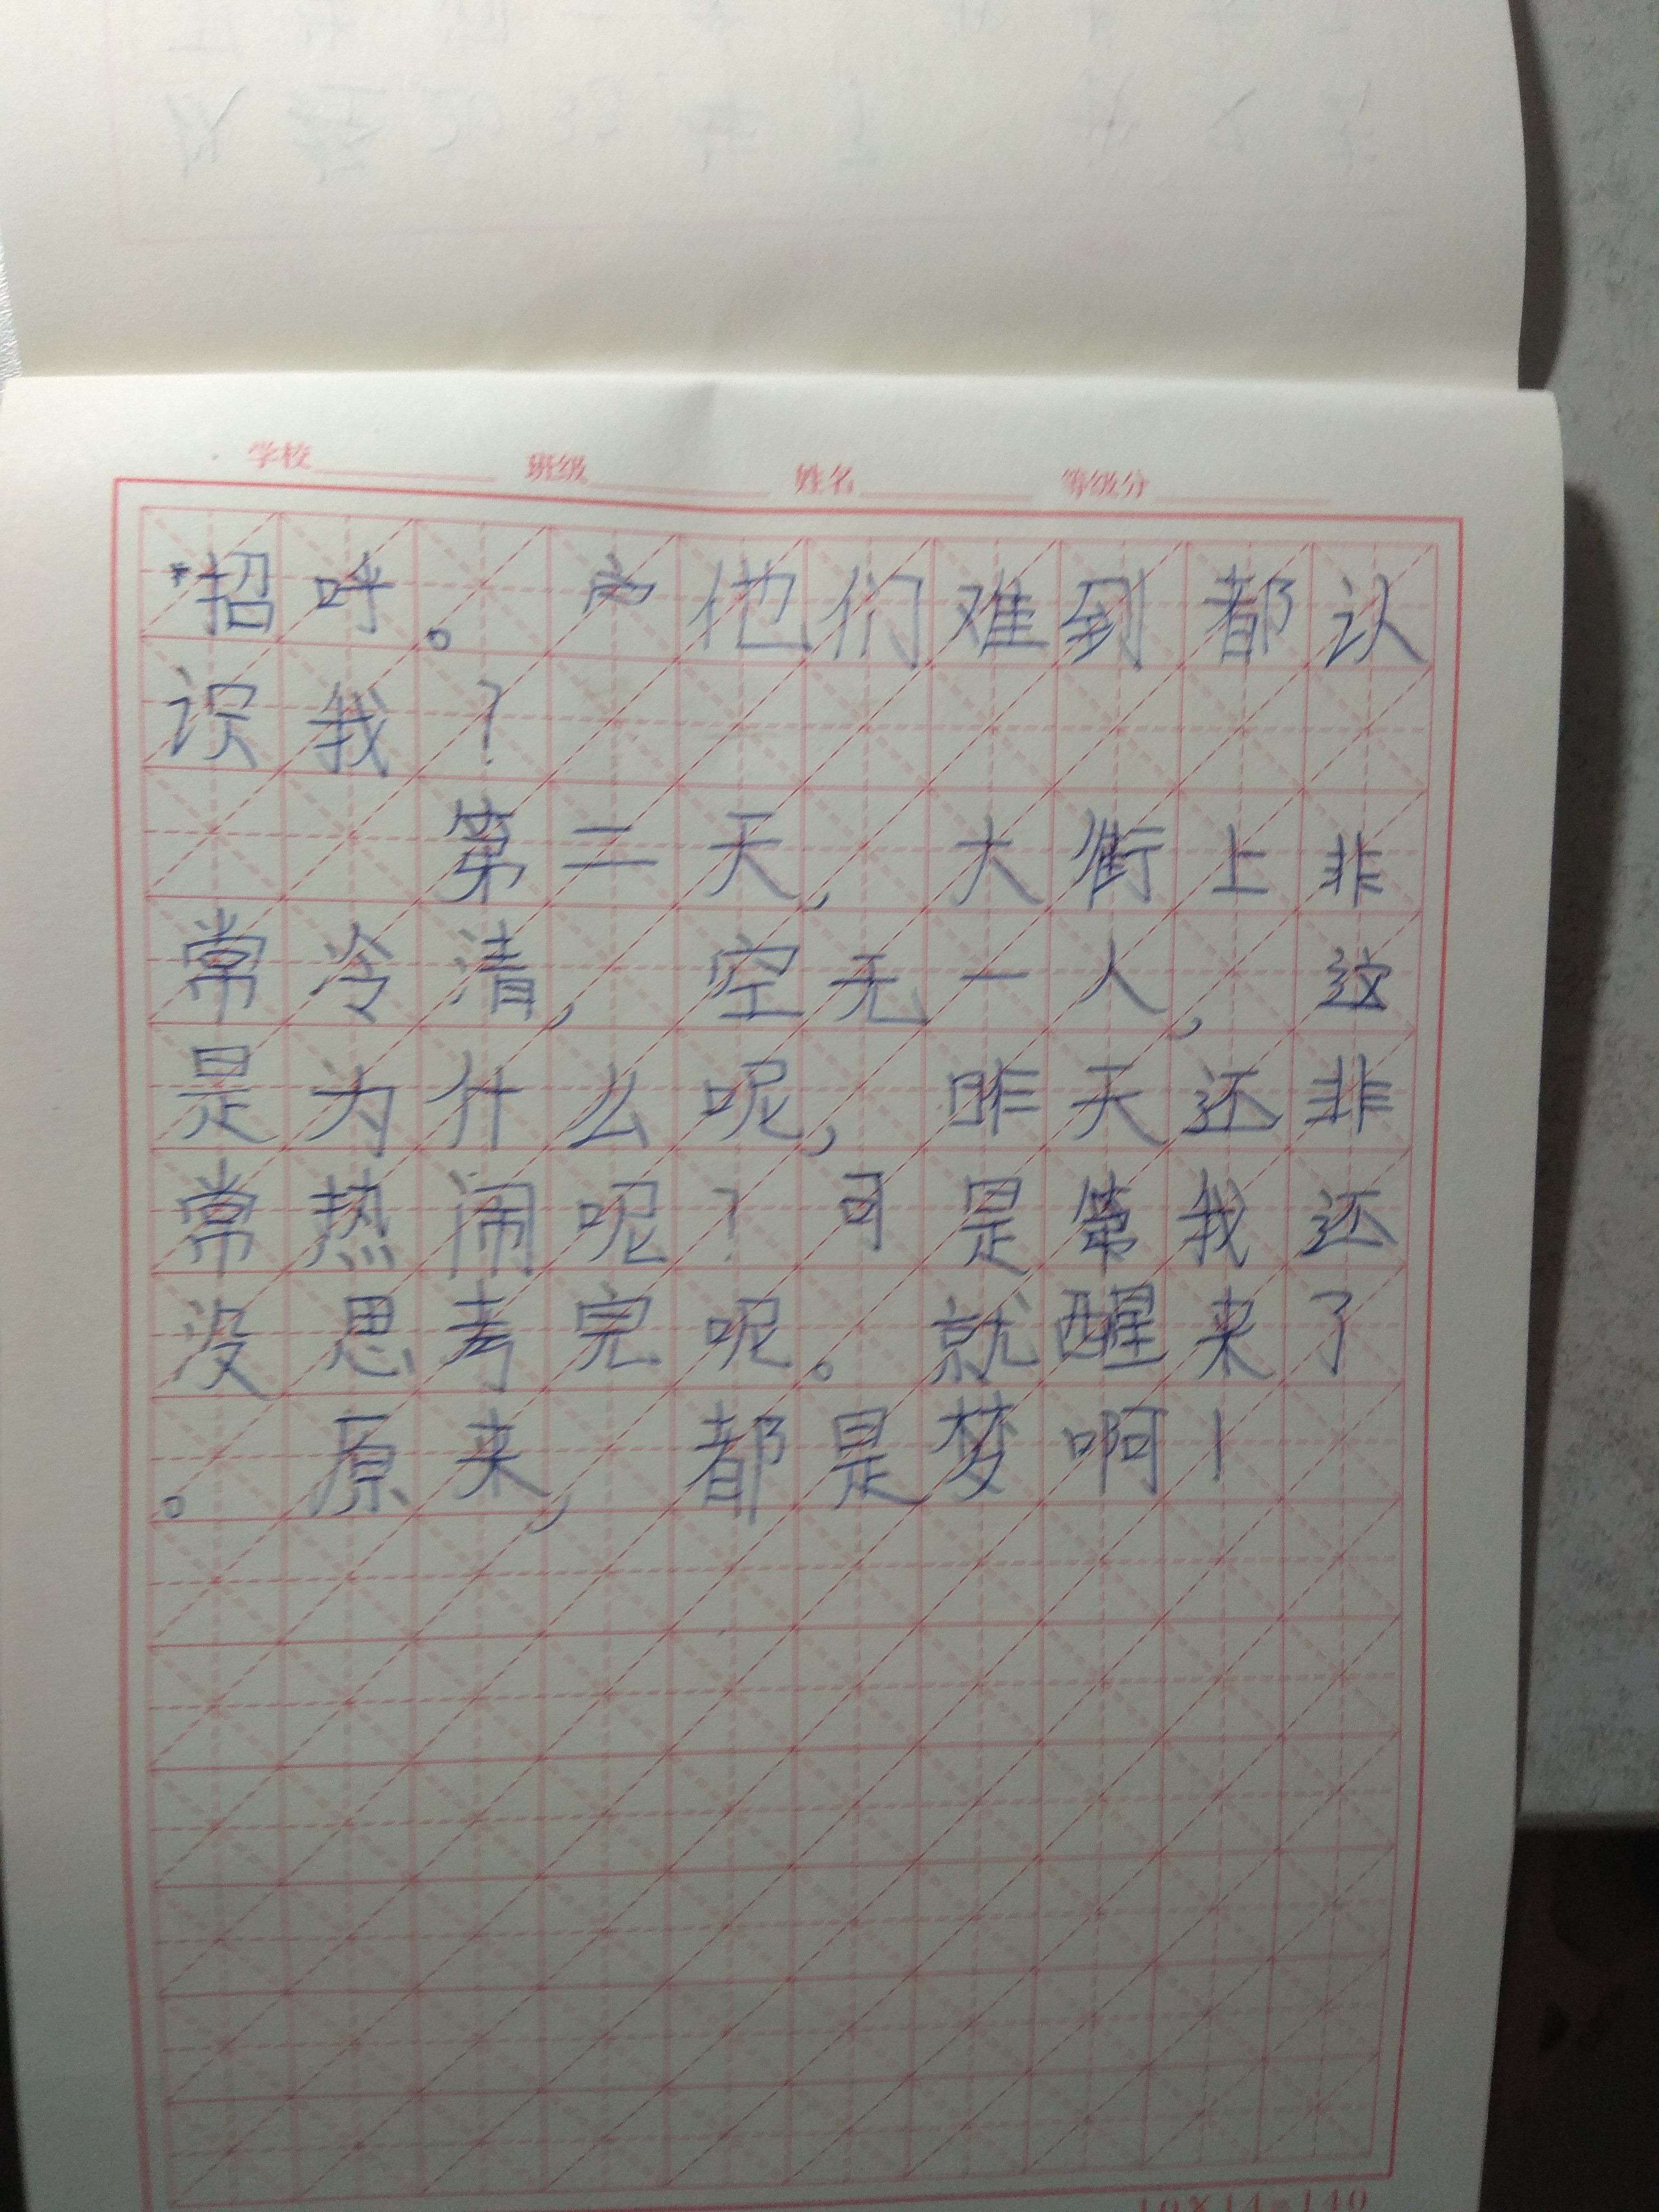 学校 班级 姓名 等级分
招呼。他们难到都认
识我?
第二天,大街上非
常冷清,空无一人,这
是为什么呢,昨天还非
常热闹呢?可是第我还
没思考完呢。就醒来了
。原来,都是梦啊!
10×14=140